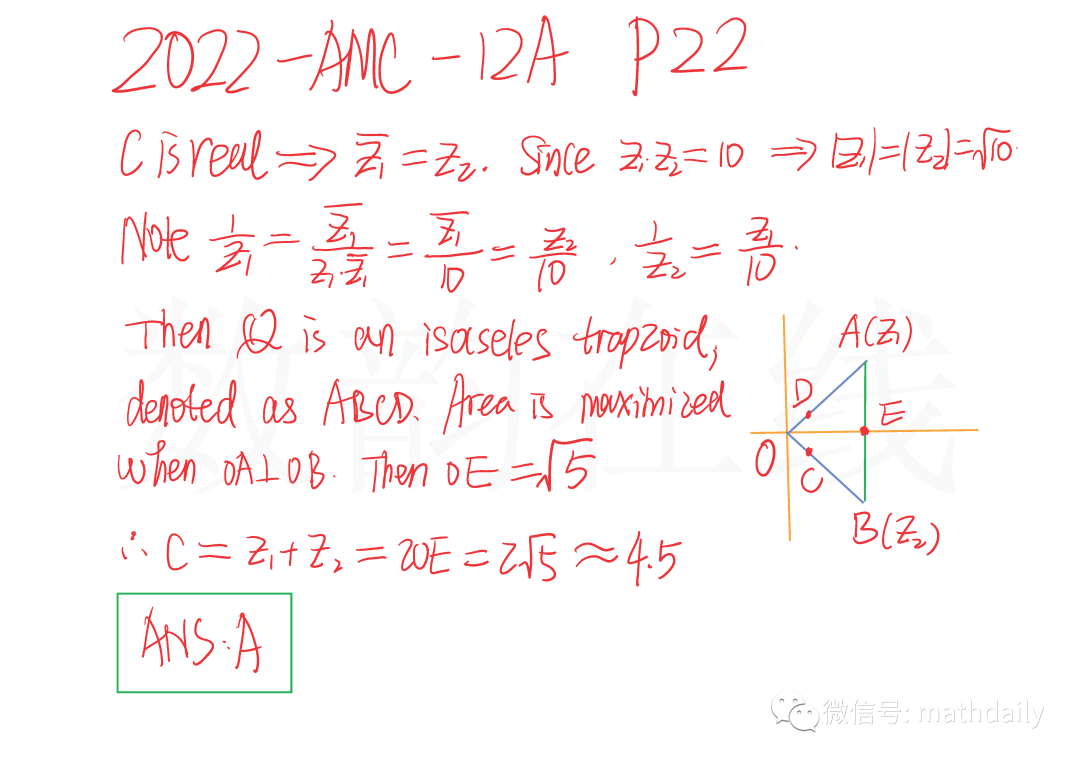 2022-AMC-12A P22
C is real ⟹ z̅₁ = z₂. Since z₁·z₂ = 10 ⟹ |z₁| = |z₂| = √10.
Note 1/z₁ = z̅₁/(z₁·z̅₁) = z̅₁/10 = z₂/10, 1/z₂ = z₁/10.
Then Q is an isoseles trapzoid,
denoted as ABCD. Area is maximized
when OA⊥OB. Then OE = √5
∴ C = z₁+z₂ = 2OE = 2√5 ≈ 4.5
ANS: A
A(z₁)
D
E
O
C
B(z₂)
数韵在线
微信号: mathdaily